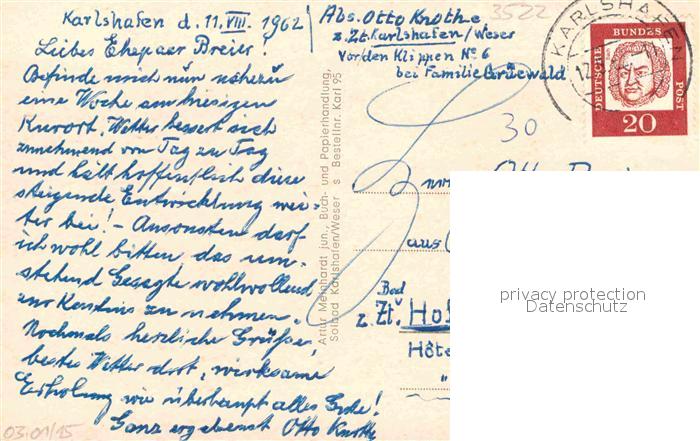 Karlshafen d. 11. VIII. 1962
Liebes Ehepaar Breier!
Befinde mich nun nahezu
eine Woche am hiesigen
Kurort. Wetter bessert sich
zunehmend von Tag zu Tag
und hält hoffentlich diese
steigende Entwicklung wei-
ter bei! - Ansonsten darf
ich wohl bitten das um-
stehend Gesagte wohlwollend
zur Kenntnis zu nehmen.
Nochmals herzliche Grüße,
bestes Wetter dort, wirksame
Erholung wie überhaupt alles Gute!
Ganz ergebenst Otto Knothe
03.01/15
Artur Meinhardt jun., Buch- und Papierhandlung,
Solbad Karlshafen/Weser s Bestellnr. Karl 95
Abs. Otto Knothe
z. Zt. Karlshafen/Weser
Vor den Klippen No 6
bei Familie Grünewald.
3522
30
KARLSHAFEN
DEUTSCHE BUNDES POST
20
aus
Bad
z. Zt. Hof
Hôte
privacy protection
Datenschutz